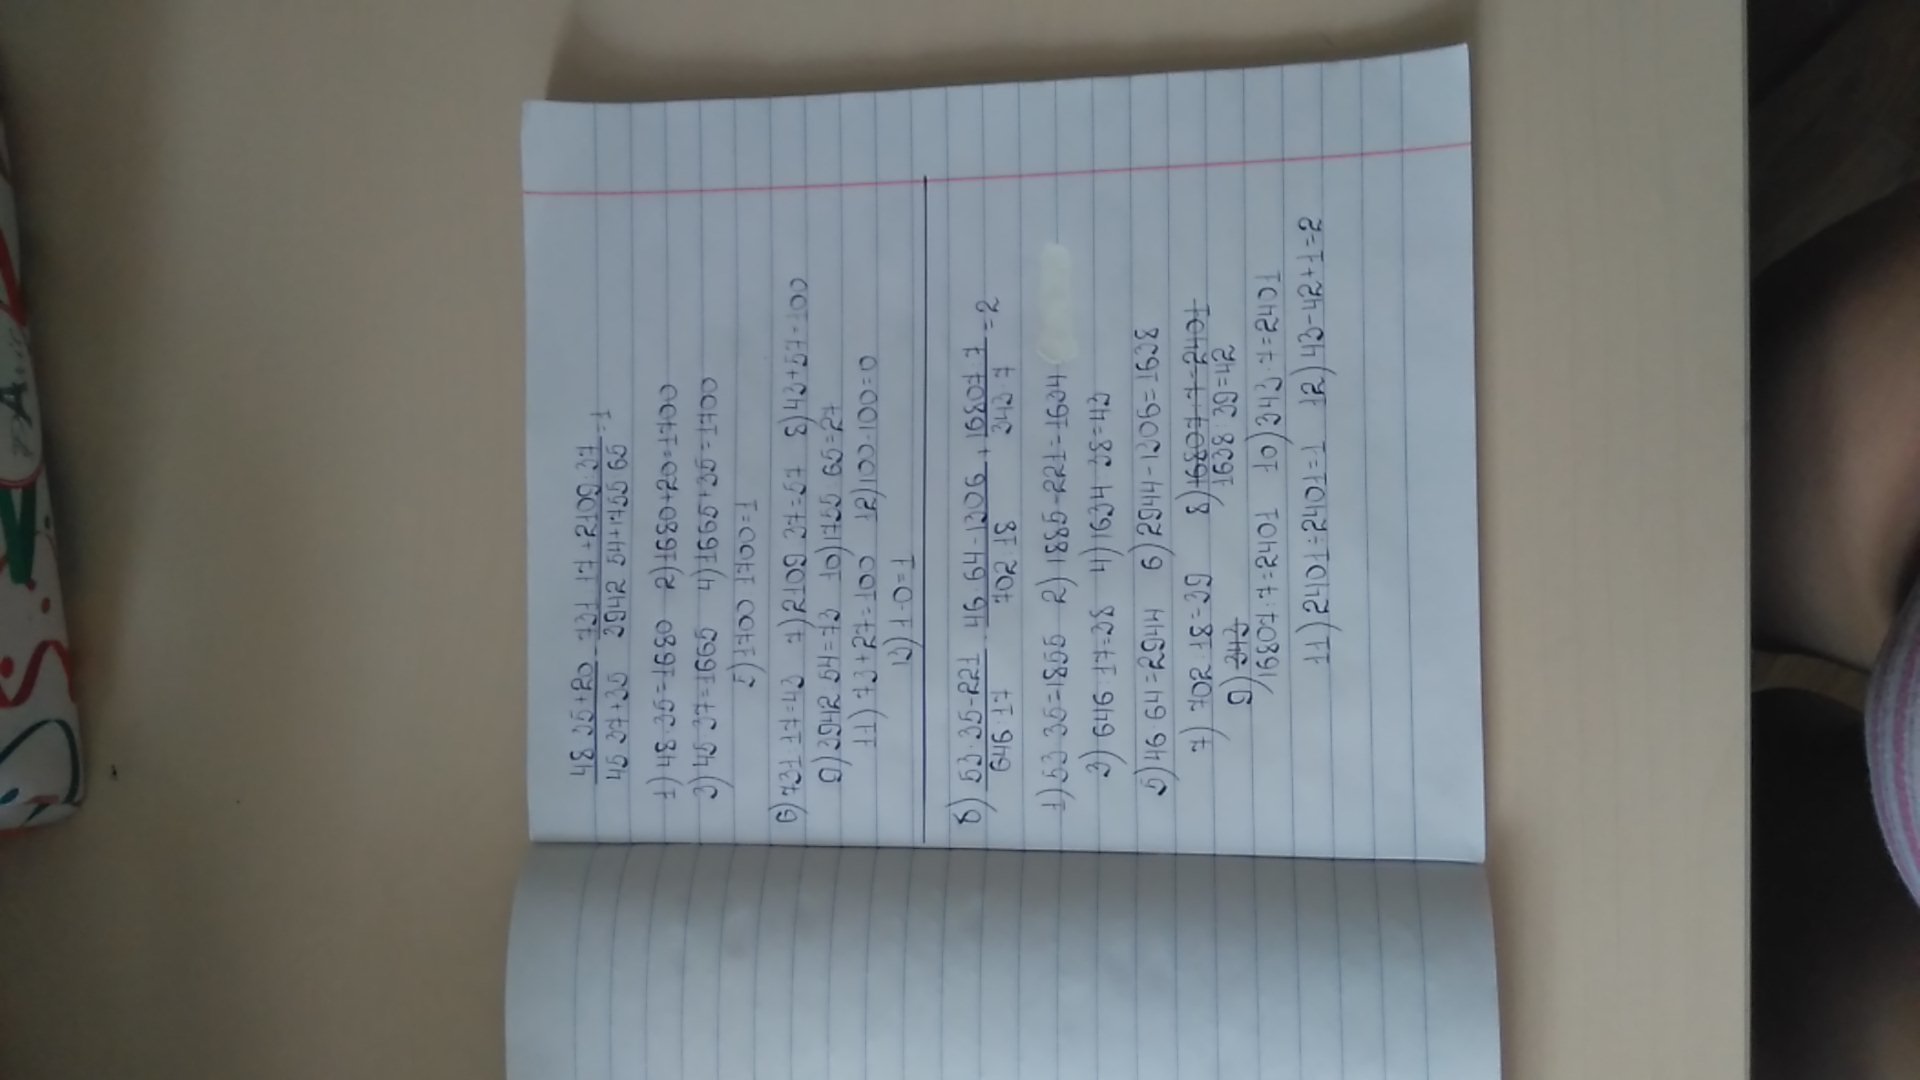 48 35+20 - 731 17+2109:37 =1
45 37+35 3942 54+1755 65
1) 48·35=1680 2) 1680+20=1700
3) 45 37=1665 4) 1665+35=1700
5) 1700 1700=1
6) 731 17=43 7) 2109 37=57 8) 43+57=100
9) 3942 54=73 10) 1755 65=27
11) 73+27=100 12) 100-100=0
13) 1-0=1
б) 53·35-221 - 46·64-1306 + 16807 7 =2
646·17 702:18 343·7
1) 53 35=1855 2) 1885-221=1634
3) 646 17=38 4) 1634 38=43
5) 46 64=2944 6) 2944-1306=1638
7) 702:18=39 8) 16807 7=2401
1638:39=42
9) 343
16807:7=2401 10) 343·7=2401
11) 2401:2401=1 12) 43-42+1=2